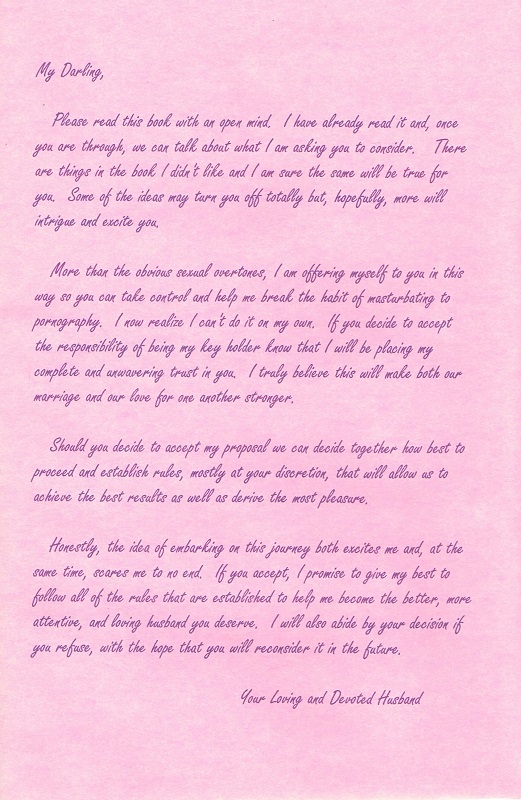 My Darling,
Please read this book with an open mind. I have already read it and, once
you are through, we can talk about what I am asking you to consider. There
are things in the book I didn't like and I am sure the same will be true for
you. Some of the ideas may turn you off totally but, hopefully, more will
intrigue and excite you.
More than the obvious sexual overtones, I am offering myself to you in this
way so you can take control and help me break the habit of masturbating to
pornography. I now realize I can't do it on my own. If you decide to accept
the responsibility of being my key holder know that I will be placing my
complete and unwavering trust in you. I truly believe this will make both our
marriage and our love for one another stronger.
Should you decide to accept my proposal we can decide together how best to
proceed and establish rules, mostly at your discretion, that will allow us to
achieve the best results as well as derive the most pleasure.
Honestly, the idea of embarking on this journey both excites me and, at the
same time, scares me to no end. If you accept, I promise to give my best to
follow all of the rules that are established to help me become the better, more
attentive, and loving husband you deserve. I will also abide by your decision if
you refuse, with the hope that you will reconsider it in the future.
Your Loving and Devoted Husband